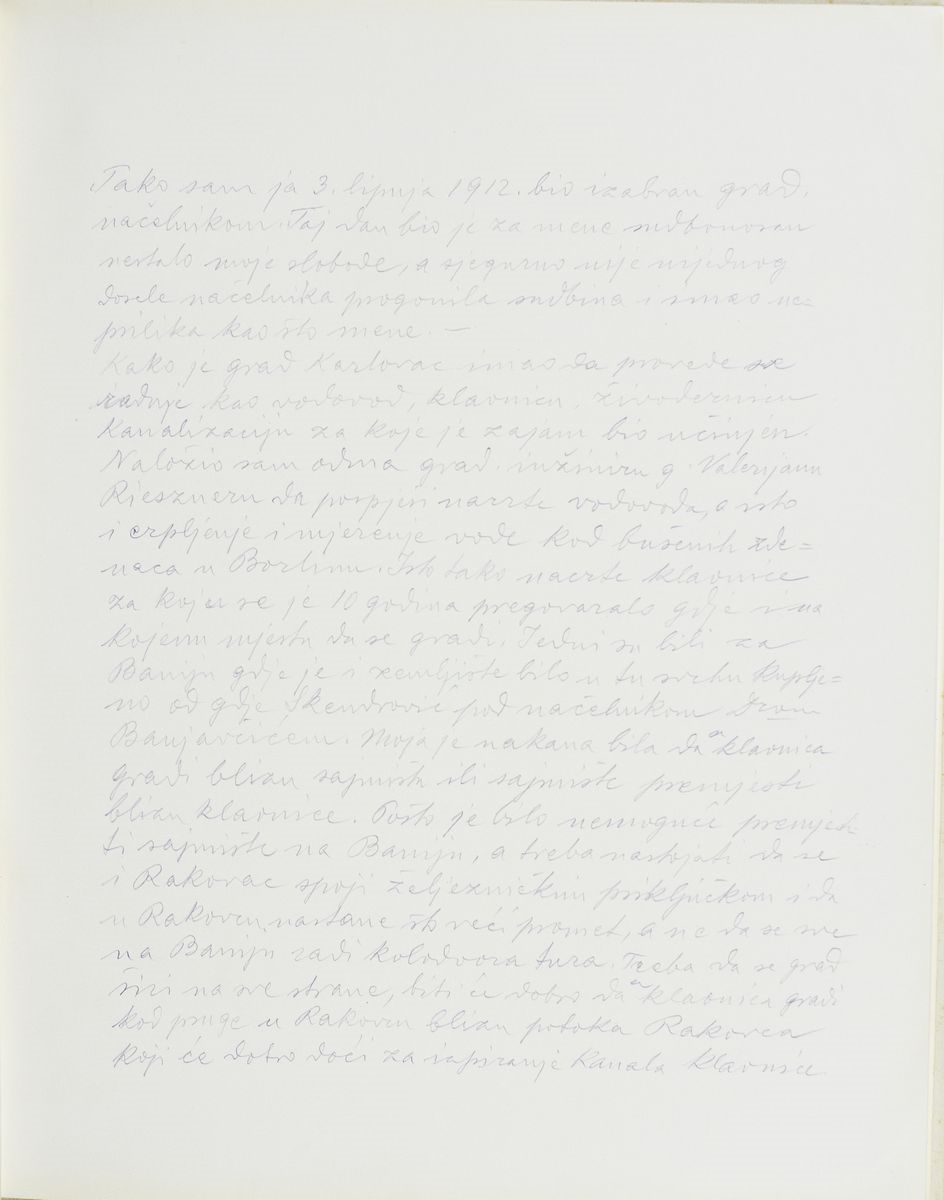 Tako sam ja 3. lipnja 1912. bio izabran grad.
načelnikom. Taj dan bio je za mene sudbonosan
nestalo moje slobode, a sjegurno nije nijednog
dosele načelnika progonila sudbina i imao ne=
prilika kao što mene. —
Kako je grad Karlovac imao da provede
radnje kao vodovod, klaonicu, živodernicu
Kanalizaciju za koje je zajam bio učinjen.
Naložio sam odma grad. inžiniru g. Valerijanu
Rieszneru da pospješi nacrte vodovoda, a isto
i crpljenje i mjerenje vode kod bušenih zde=
naca u Borlinu. Isto tako nacrte klaonice
za koju se je 10 godina pregovaralo gdje i na
kojemu mjestu da se gradi. Jedni su bili za
Baniju gdje je i zemljište bilo u tu svrhu kuplje=
no od gdje Škendrović pod načelnikom Drom
Banjavčićem. Moja je nakana bila da se klaonica
gradi blizu sajmišta ili sajmište premjesti
blizu klaonice. Pošto je bilo nemoguče premjes=
ti sajmište na Baniju, a treba nastojati da se
i Rakovac spoji željezničkim priključkom i da
u Rakovcu nastane što veći promet, a ne da se sve
na Baniju radi kolodvora tura. Treba da se grad
širi na sve strane, biti će dobro da se klaonica gradi
kod pruge u Rakovcu blizu potoka Rakovca
koji će dobro doći za ispiranje Kanala klaonice